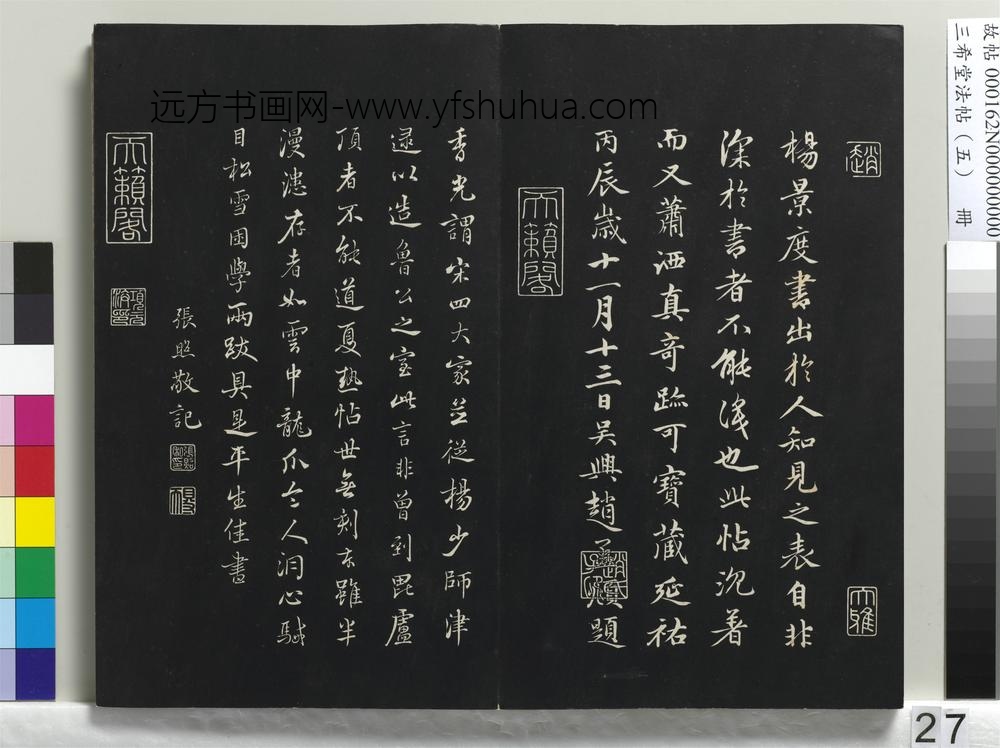 楊景度書出於人知見之表自非
深於書者不能淺也此帖沉著
而又蕭洒真奇跡可寶藏延祐
丙辰歲十一月十三日吳興趙孟頫題
香光謂宋四大家並從楊少師津
逮以造魯公之室此言非曾到毘盧
頂者不能道夏熱帖世無刻本雖半
漫漶存者如雲中龍爪令人洞心駴
目松雪困學兩跋具是平生佳書
張照敬記
趙
大雅
天籟閣
趙氏子昂
天籟閣
项元汴印
張照
远方书画网-www.yfshuhua.com
故帖 000162N000000000
三希堂法帖（五） 冊
27